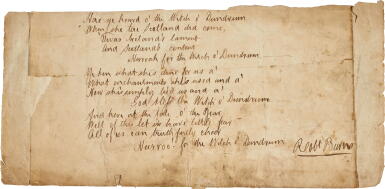 Hae ye heard o' the Witch o' Dundrum
When she tae Scotland did come,
'Twas Ireland's lament
And Scotland's content
Hurrah for the Witch o' Dundrum
what she's done for us a'
What enchantments she's used and a'
How she's us and a'
God bless the Witch o' Dundrum
here at the tale o' the
Well of this let us have little fear
All of us can truthfully cheer
Hurroo! for the Witch o' Dundrum
Robt Burns